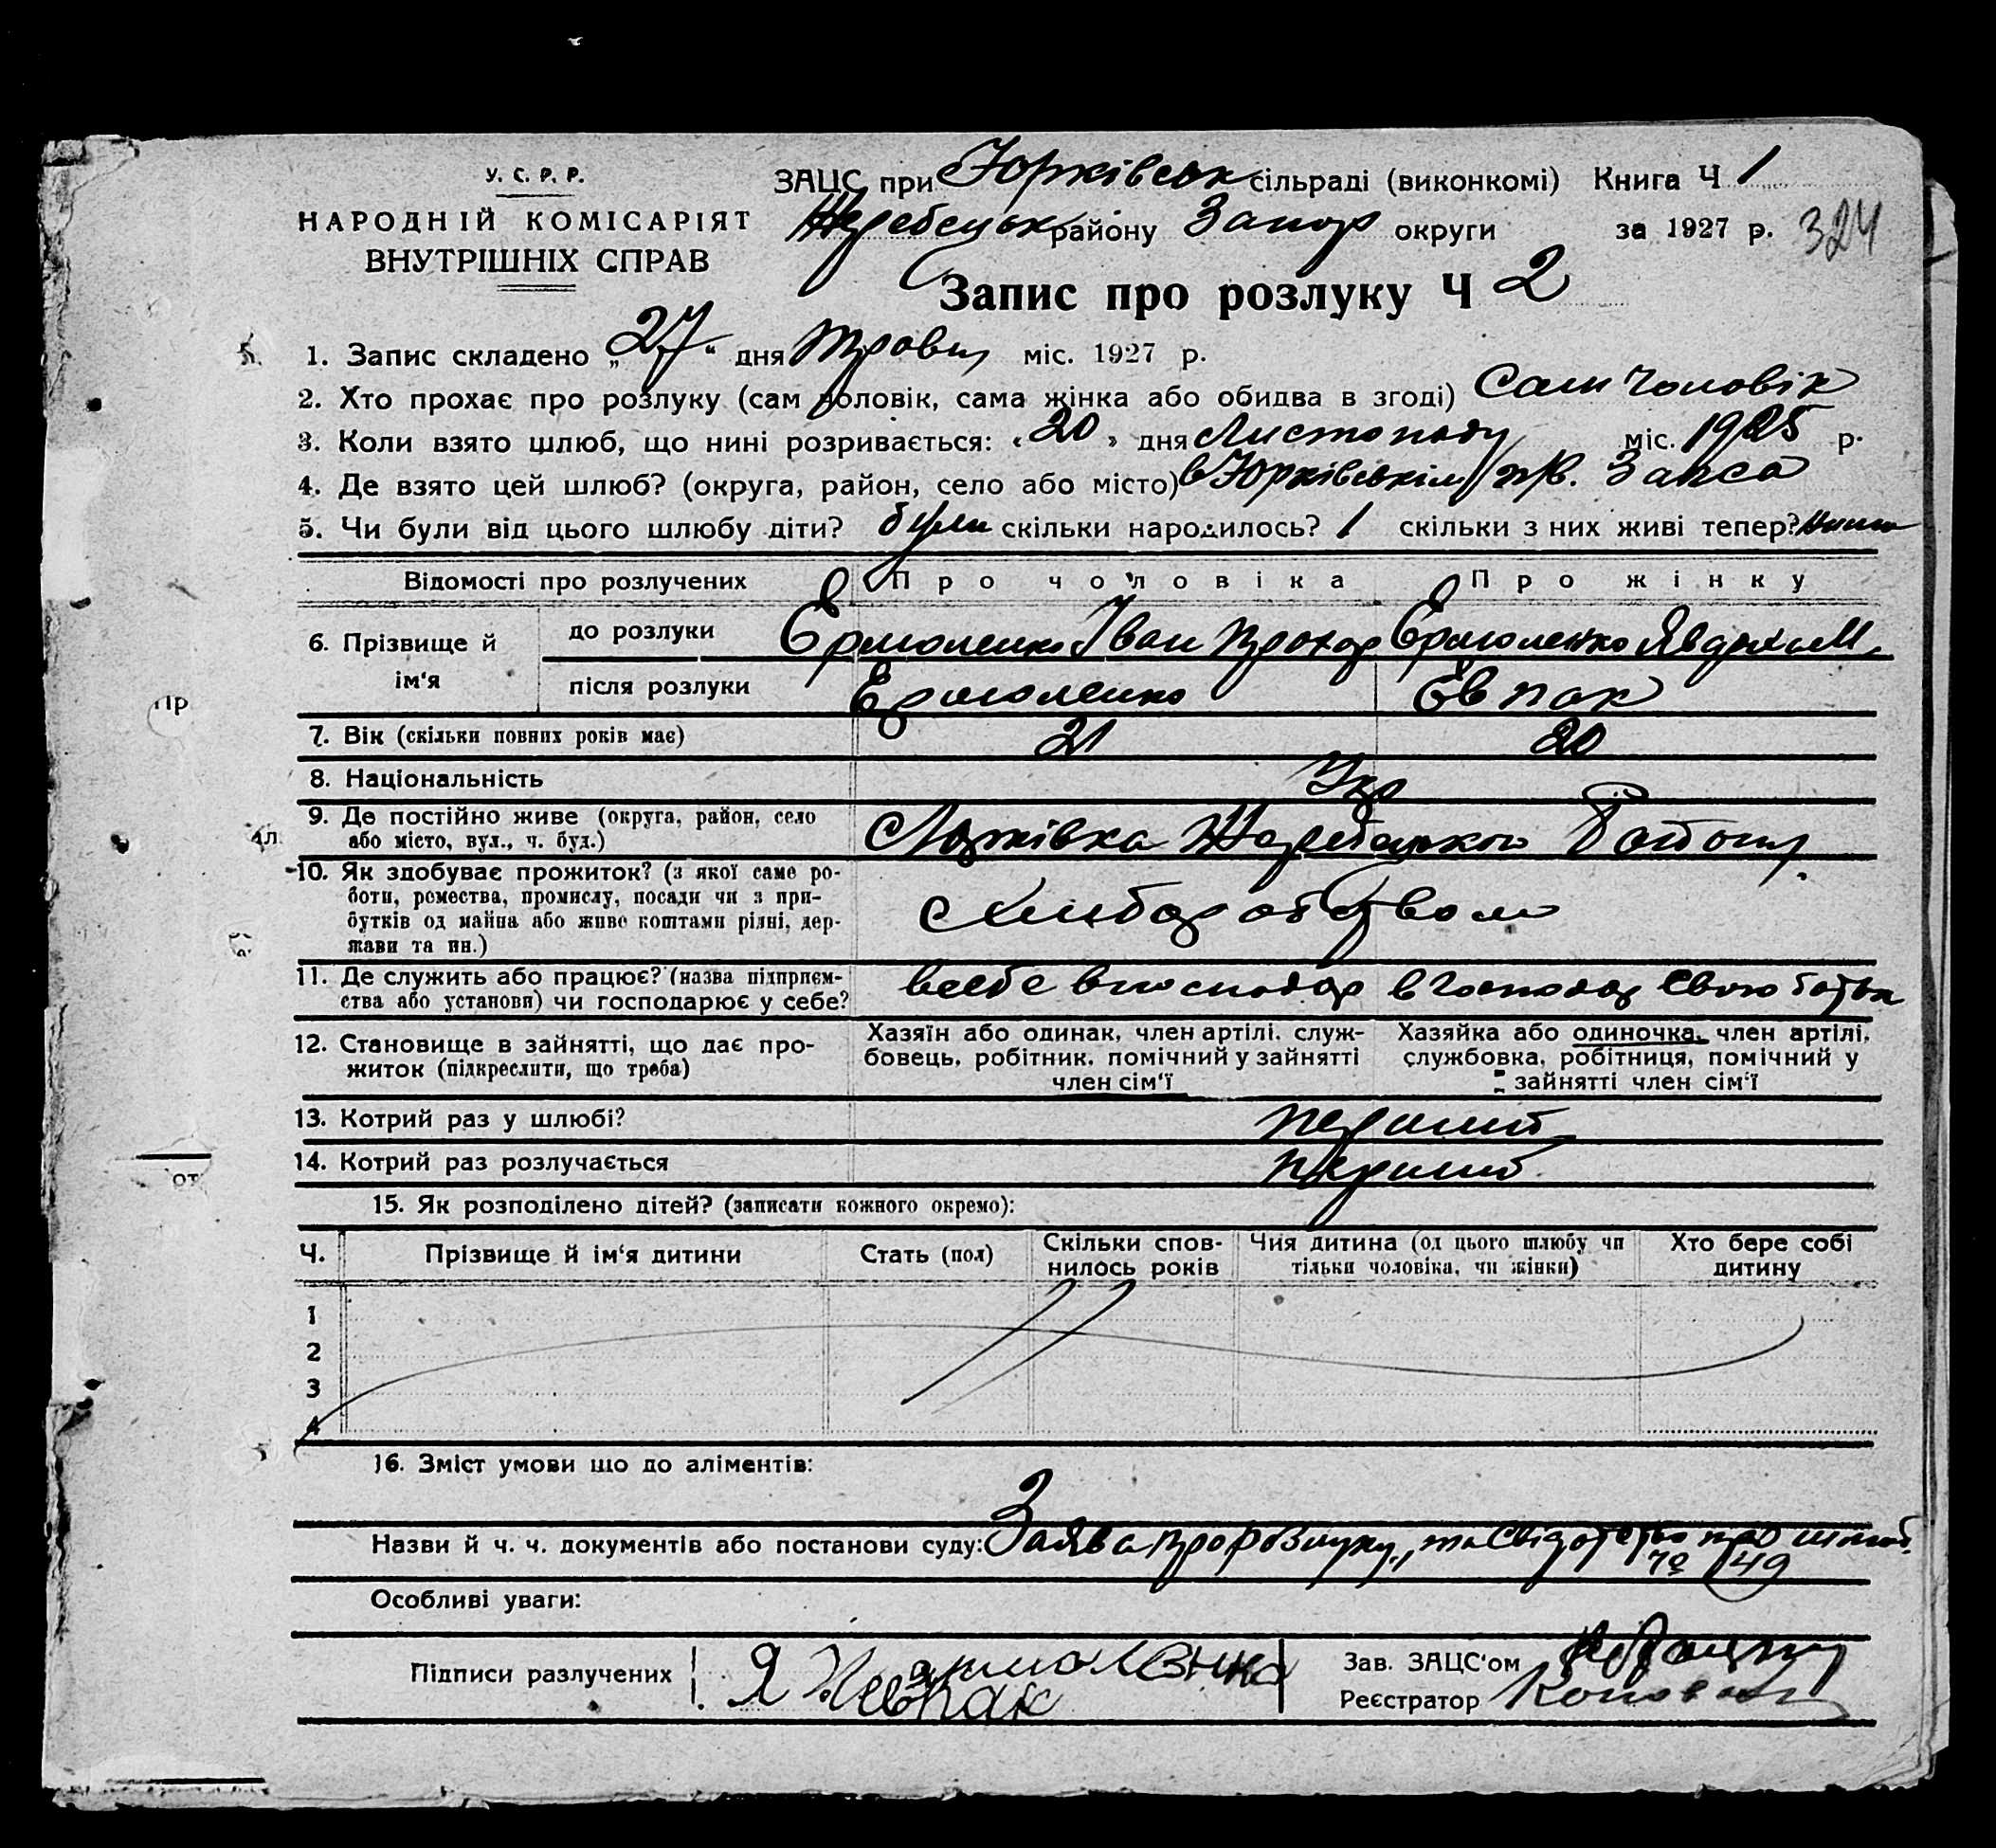 У. С. Р. Р.
НАРОДНІЙ КОМІСАРІЯТ
ВНУТРІШНІХ СПРАВ
ЗАЦС при Юрківськ сільраді (виконкомі) Книга Ч 1
Жеребецьк району Запор округи за 1927 р. 324
Запис про розлуку Ч 2
1. Запис складено „27“ дня Травня міс. 1927 р.
2. Хто прохає про розлуку (сам чоловік, сама жінка або обидва в згоді) Сам чоловік
3. Коли взято шлюб, що нині розривається: «20» дня Листопаду міс. 1925 р.
4. Де взято цей шлюб? (округа, район, село або місто) в Юрківськім Запса
5. Чи були від цього шлюбу діти? були скільки народилось? 1 скільки з них живі тепер?
Відомості про розлучених Про чоловіка Про жінку
6. Прізвище й ім‘я
до розлуки Єрмоленко Іван Прохор Єрмоленко Явдоха М.
після розлуки Єрмоленко Євпак
7. Вік (скільки повних років має) 21 20
8. Національність Укр
9. Де постійно живе (округа, район, село
або місто, вул., ч. буд.) Жеребецького Району
10. Як здобуває прожиток? (з якої саме ро-
боти, ремества, промислу, посади чи з при-
бутків од майна або живе коштами рідні, дер-
жави та ин.)
с хлиборобством
11. Де служить або працює? (назва підприєм-
ства або установи) чи господарює у себе?
в себе в господар в господар свого батька
12. Становище в зайнятті, що дає про-
житок (підкреслити, що треба)
Хазяїн або одинак, член артілі, служ-
бовець, робітник, помічний у зайнятті
член сім‘ї
Хазяйка або одиночка, член артілі,
службовка, робітниця, помічний у
зайнятті член сім‘ї
13. Котрий раз у шлюбі? перший
14. Котрий раз розлучається перший
15. Як розподілено дітей? (записати кожного окремо):
Ч. Прізвище й ім‘я дитини Стать (пол) Скільки спов-
нилось років Чия дитина (од цього шлюбу чи
тільки чоловіка, чи жінки) Хто бере собі
дитину
1
2
3
4
16. Зміст умови що до аліментів:
Назви й ч. ч. документів або постанови суду: Заява про розлуку, та свідоцтво про шлюб.
49
Особливі уваги:
Підписи разлучених
Зав. ЗАЦС‘ом
Реєстратор